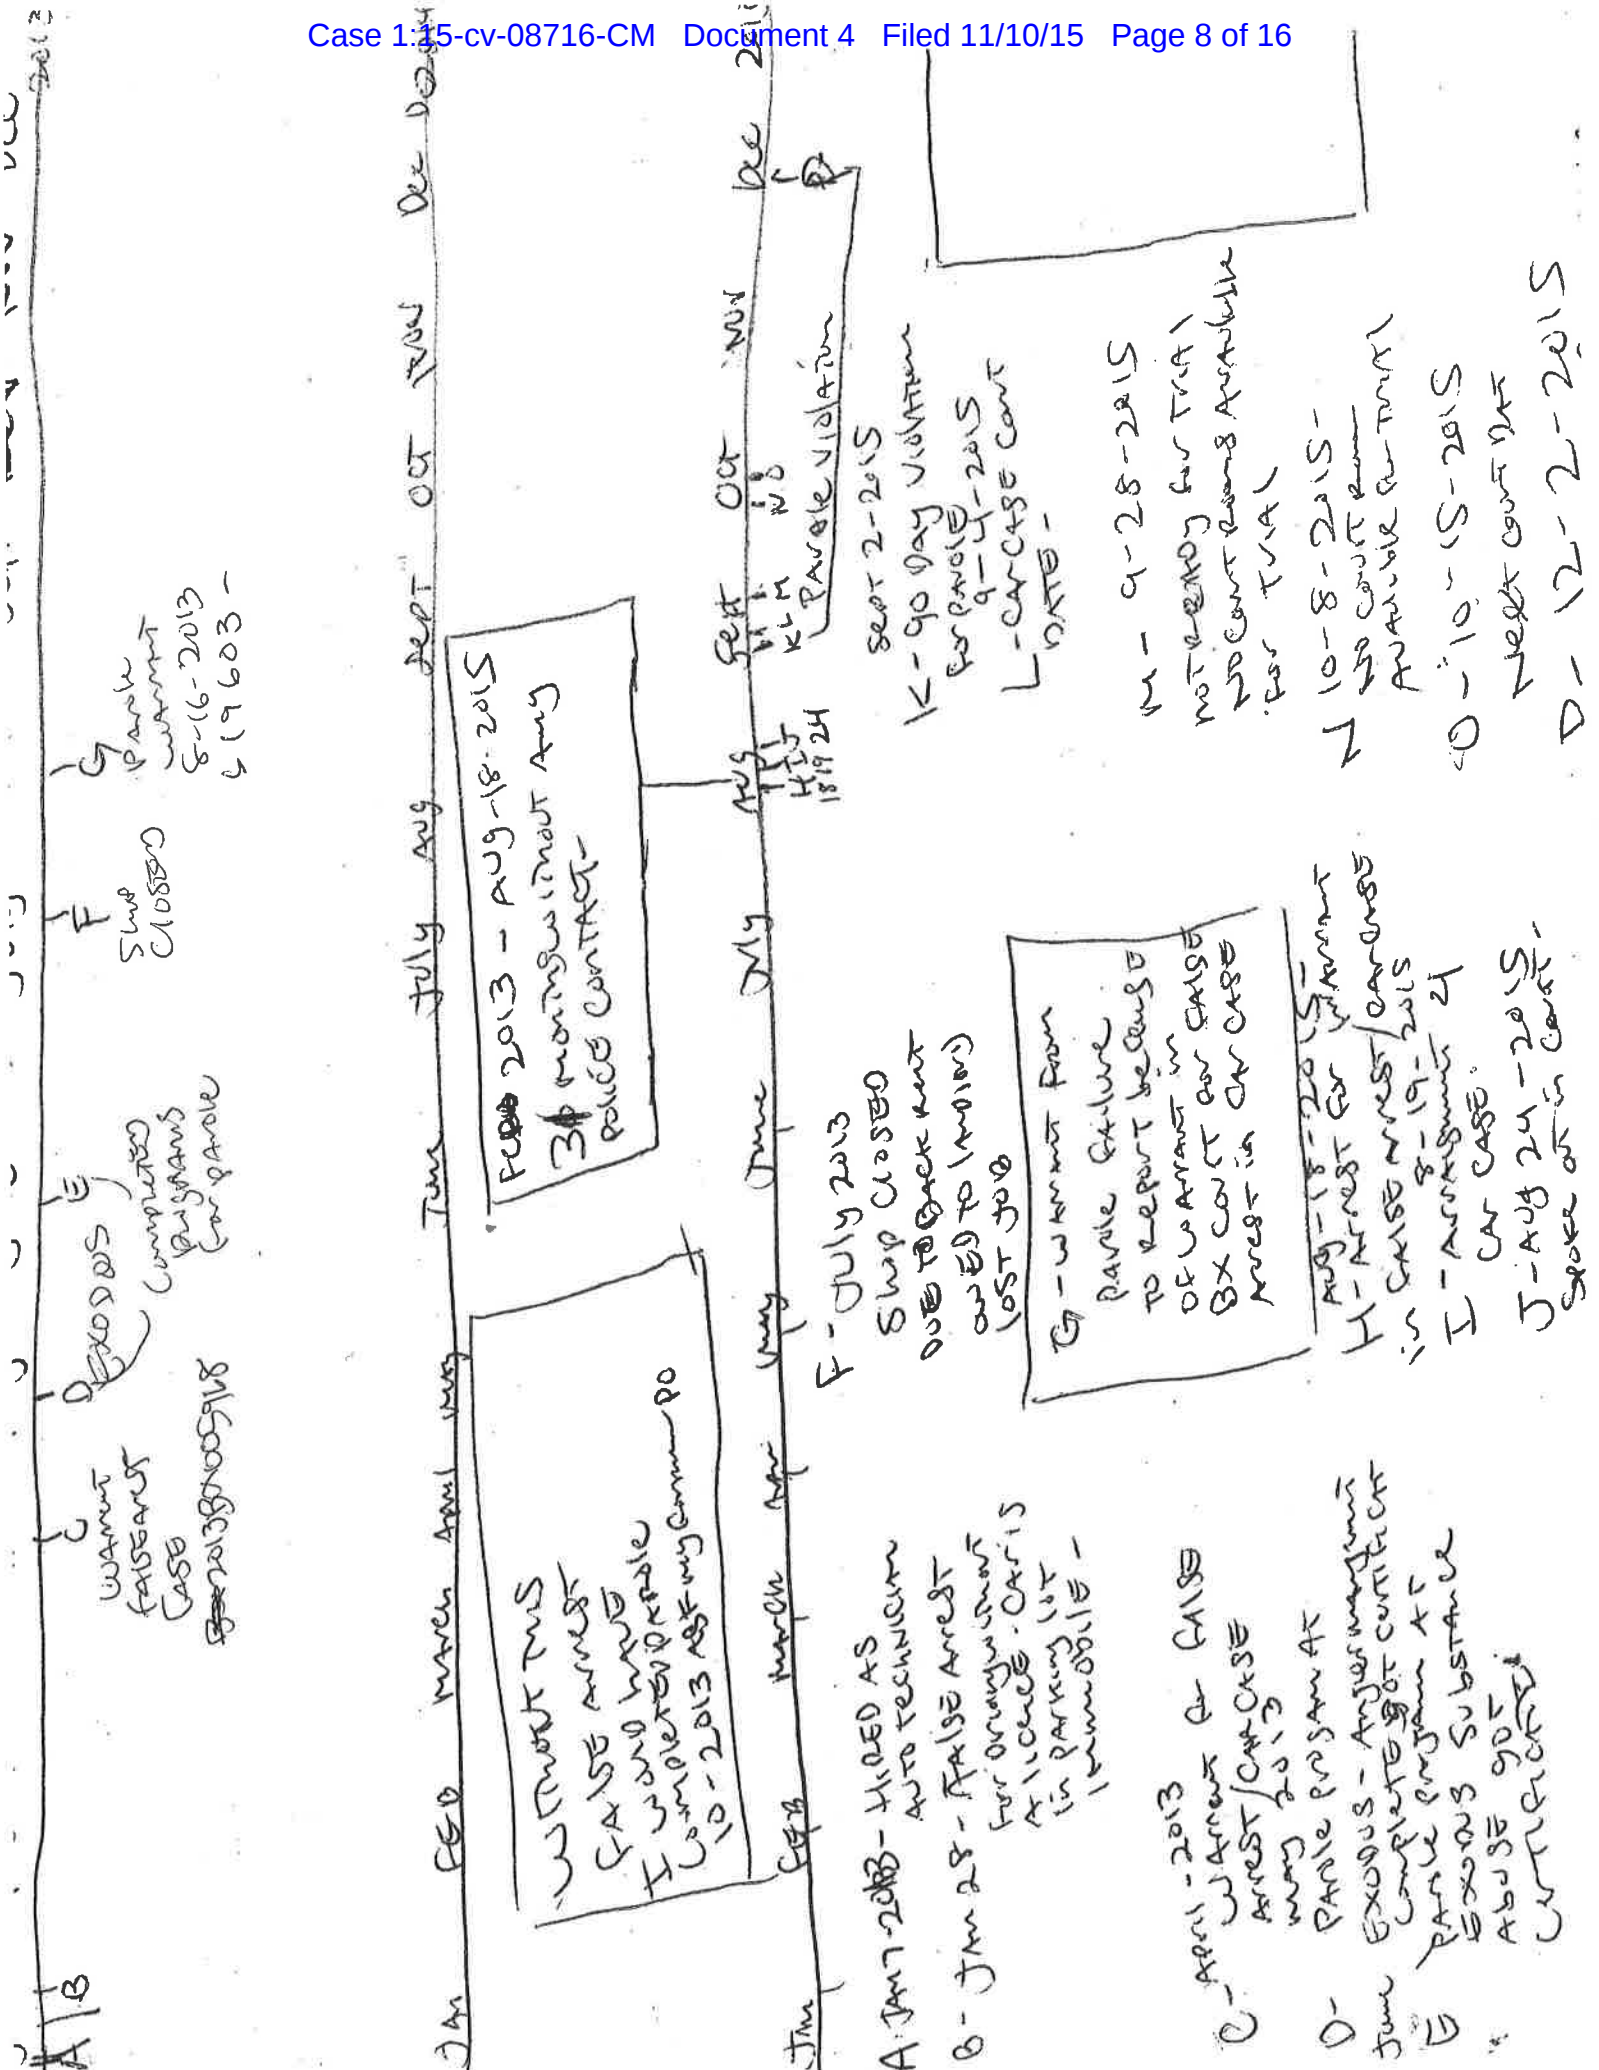 Case 1:15-cv-08716-CM Document 4 Filed 11/10/15 Page 8 of 16
2013
A B C D E F G
WARRENT
FALSE ARREST
CASE
2013BX005968
EXODOS
Completed
Programs
for parole
Shop
ClOSED
Parole
warrant
8-16-2013
619603-
Jan FEB March April May June July Aug SEPT OCT NOV Dec
WITHOUT THIS
FALSE ARREST
I would have
completed parole
10-2013 AS
PO
2013 - AUG-18-2015
months without Any
Police CONTACT-
Jan FEB March Apr May June July AUG Sept OCT NOV Dec
H I J
18 19 24
K L M
N O
Parole violation
A. JAN 7-2013- HIRED AS
AUTO TECHNICIAN
B - JAN 28 - FALSE Arrest
for driving without
A licence. Car is
in parking lot
immobile -
C - April-2013
warrent for FALSE
ArrEST/CAR CASE
may 2013
D- PArole program AT
EXODUS - Anger management
complete got certificat
June
E Parole program AT
EXODUS SubSTANCE
AbUSE got
certificate
F - July 2013
Shop CLOSED
DUE TO BACK Rent
OWED TO landlord
lOST JOB
G - warrant from
Parole failure
to report because
of warrant in
BX Court for FALSE
Arrest in Car CASE
Aug-18-2015-
H - Arrest for Warrant
in FALSE Arrest/carcase
8-19-2015
I - Arraignment
CAr CASE.
J - Aug 24-2015
Spoke at in court.
Sept 2-2015
K - 90 Day violation
for parole
9-4-2015
L - CAr CASE Court
DATE-
M - 9-28-2015
not READy for TriAl
NO Court Rooms Available
for TriAl
N 10-8-2015-
NO Court Room
Available for Trial
O - 10-15-2015
Next court DAT
D- 12-2-2015